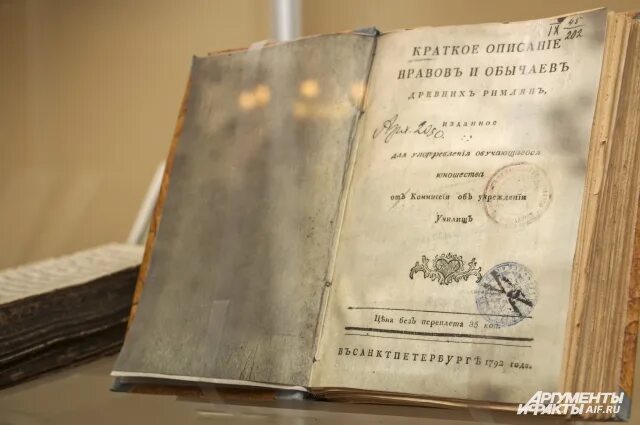 IX 45
202
КРАТКОЕ ОПИСАНІЕ
НРАВОВЪ И ОБЫЧАЕВЪ
ДРЕВНИХЪ РИМЛЯНЪ,
изданное
для употребления обучающагося
юношества
отъ Коммиссіи объ учрежденіи
Училищъ
Цѣна безъ переплета 35 коп.
ВЪ САНКТПЕТЕРБУРГѢ 1792 года.
АРГУМЕНТЫ
И ФАКТЫ AIF.RU